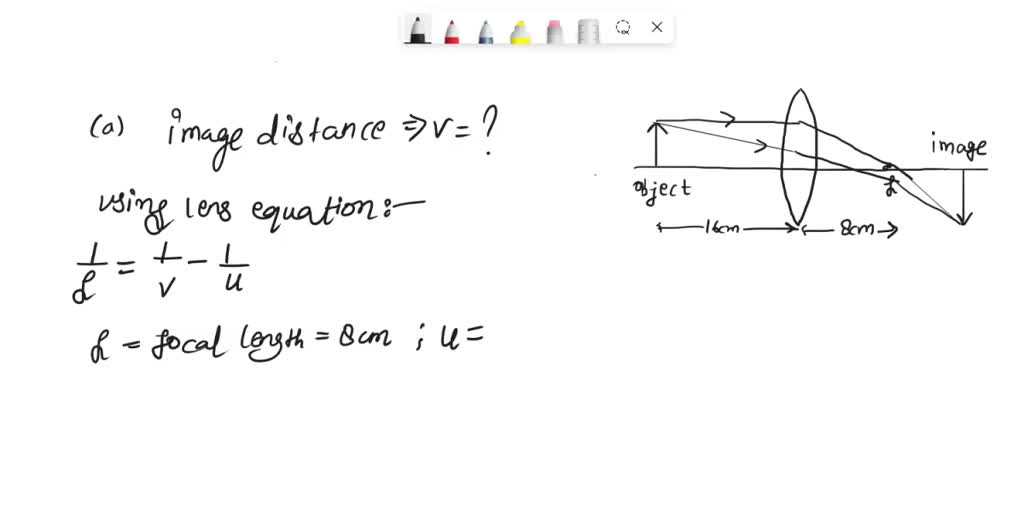 (a) image distance ⇒ v = ?
using lens equation:—
1/f = 1/v - 1/u
f = focal length = 8cm ; u =
image
object
f
16cm
8cm